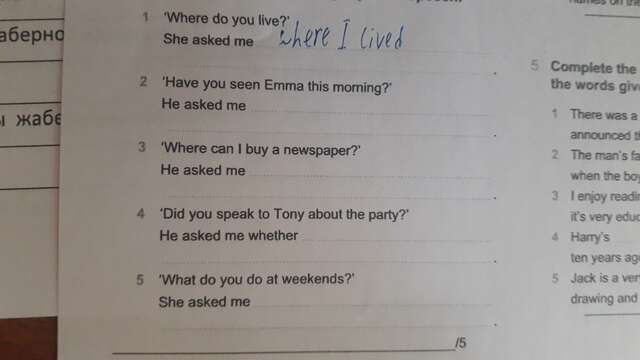 аберно
ы жабе
1 'Where do you live?'
She asked me where I lived .
2 'Have you seen Emma this morning?'
He asked me
.
3 'Where can I buy a newspaper?'
He asked me
.
4 'Did you speak to Tony about the party?'
He asked me whether
.
5 'What do you do at weekends?'
She asked me
.
/5
5 Complete the
the words giv
1 There was a
announced t
2 The man's fa
when the boy
3 I enjoy readi
it's very educ
4 Harry's
ten years ag
5 Jack is a ver
drawing and